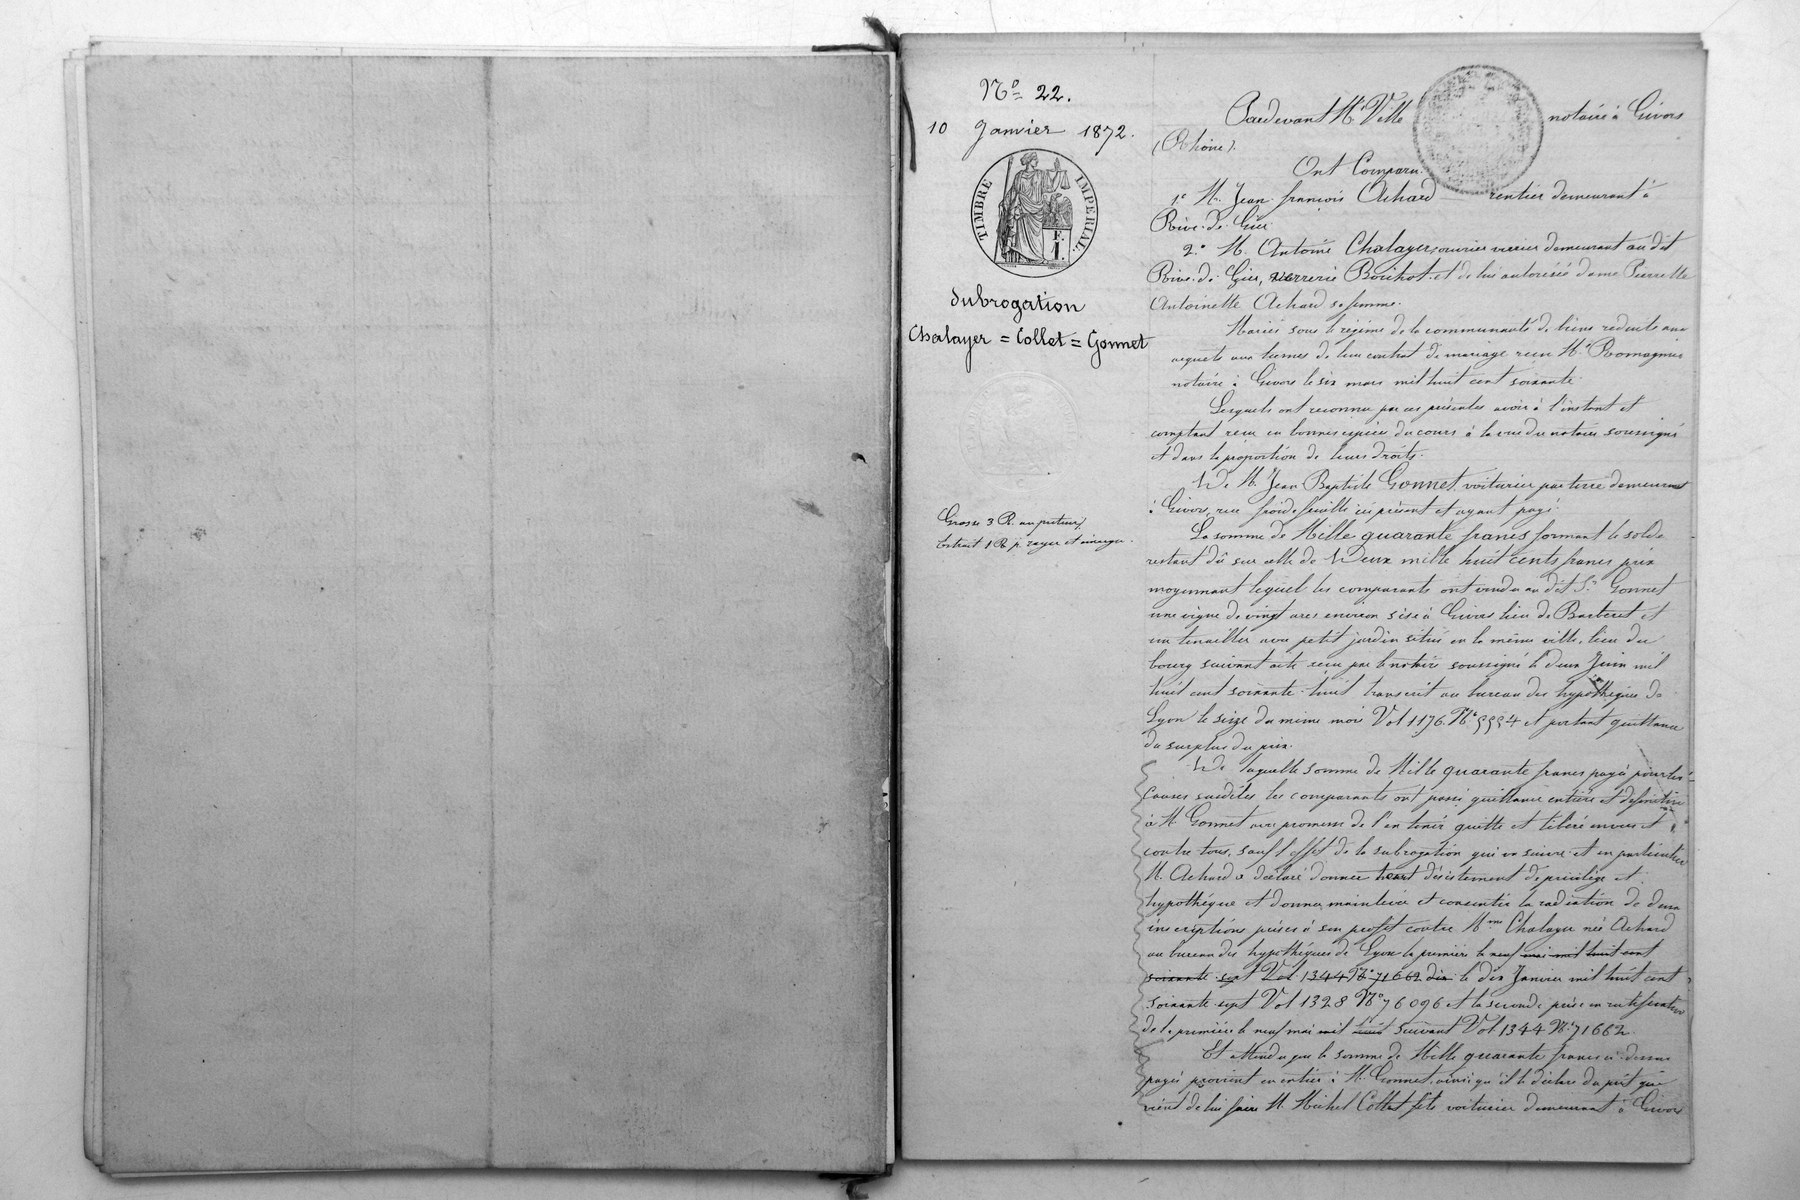 Nº 22.
10 Janvier 1872.
TIMBRE IMPERIAL.
F. 1.
Subrogation
Chalayer = Collet = Gonnet
Grosse 3 R. au prêteur
Extrait 1 R p. rayer et
Pardevant Me Ville notaire à Givors
(Rhône).
Ont Comparu.
1º M. Jean françois Achard rentier demeurant à
Rive-de-Gier
2º M. Antoine Chalayer, ouvrier verrier demeurant au dit
Rive-de-Gier, verrerie et de lui autorisée dame Pierrette
Antoinette Achard sa femme.
Mariés sous le régime de la communauté de biens réduite aux
acquets aux termes de leur contrat de mariage reçu Me Romagnier
notaire à Givors le six mars mil huit cent soixante.
Lesquels ont reconnu par ces présentes avoir à l'instant et
comptant reçu en bonnes espèces du cours à la vue du notaire soussigné
et dans la proportion de leurs droits.
De M. Jean Baptiste Gonnet, voiturier par terre demeurant
à Givors, rue froide feuille ici présent et ayant payé.
La somme de Mille quarante francs formant le solde
restant dû sur celle de Deux mille huit cents francs prix
moyennant lequel les comparants ont vendu au dit Sr Gonnet
une vigne de vingt ares environ sise à Givors lieu de Barberet et
un tenailler avec petit jardin situé en la même ville, lieu du
bourg suivant acte reçu par le notaire soussigné le deux Juin mil
huit cent soixante-huit transcrit au bureau des hypothèques de
Lyon le seize du même mois Vol 1176 Nº 5554 et portant quittance
du surplus du prix.
De laquelle somme de Mille quarante francs payée pour les
causes susdites les comparants ont passé quittance entière et définitive
à M. Gonnet avec promesse de l'en tenir quitte et libéré envers et
contre tous, sauf l'effet de la subrogation qui va suivre et en particulier
M. Achard a déclaré donner désistement de privilège et
hypothèque et donner mainlevée et consentir la radiation de deux
inscriptions prises à son profit contre Mme Chalayer née Achard
au bureau des hypothèques de Lyon la première le neuf mai mil huit cent
soixante-sept Vol. 1344 Nº 71662 dix le dix Janvier mil huit cent
soixante-sept Vol 1328 Nº 76096 et la seconde prise en rectification
de la première le neuf mai mil huit suivant Vol 1344 Nº 71662.
Et attendu que la somme de Mille quarante francs ci-dessus
payée provient en entier à M. Gonnet, ainsi qu'il le déclare du prêt que
vient de lui faire M. Michel Collet fils voiturier demeurant à Givors